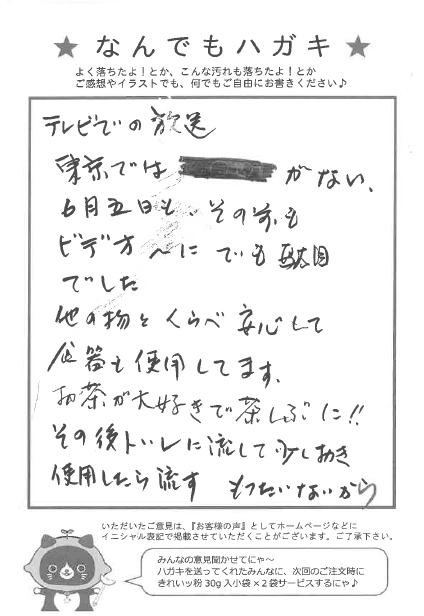 ★なんでもハガキ★
よく落ちたよ！とか、こんな汚れも落ちたよ！とか
ご感想やイラストでも、何でもご自由にお書きください♪
テレビでの放送
東京では がない、
6月五日も、その前も
ビデオ にでも駄目
でした
他の物とくらべ安心して
食器も使用してます、
お茶が大好きで茶しぶに!!
その後トイレに流して少しおき
使用したら流す もったいないから
いただいたご意見は、『お客様の声』としてホームページなどに
イニシャル表記で掲載させていただくことがございます。ご了承下さい。
みんなの意見聞かせてにゃ～
ハガキを送ってくれたみんなに、次回のご注文時に
きれいッ粉 30g 入小袋×2袋サービスするにゃ♪